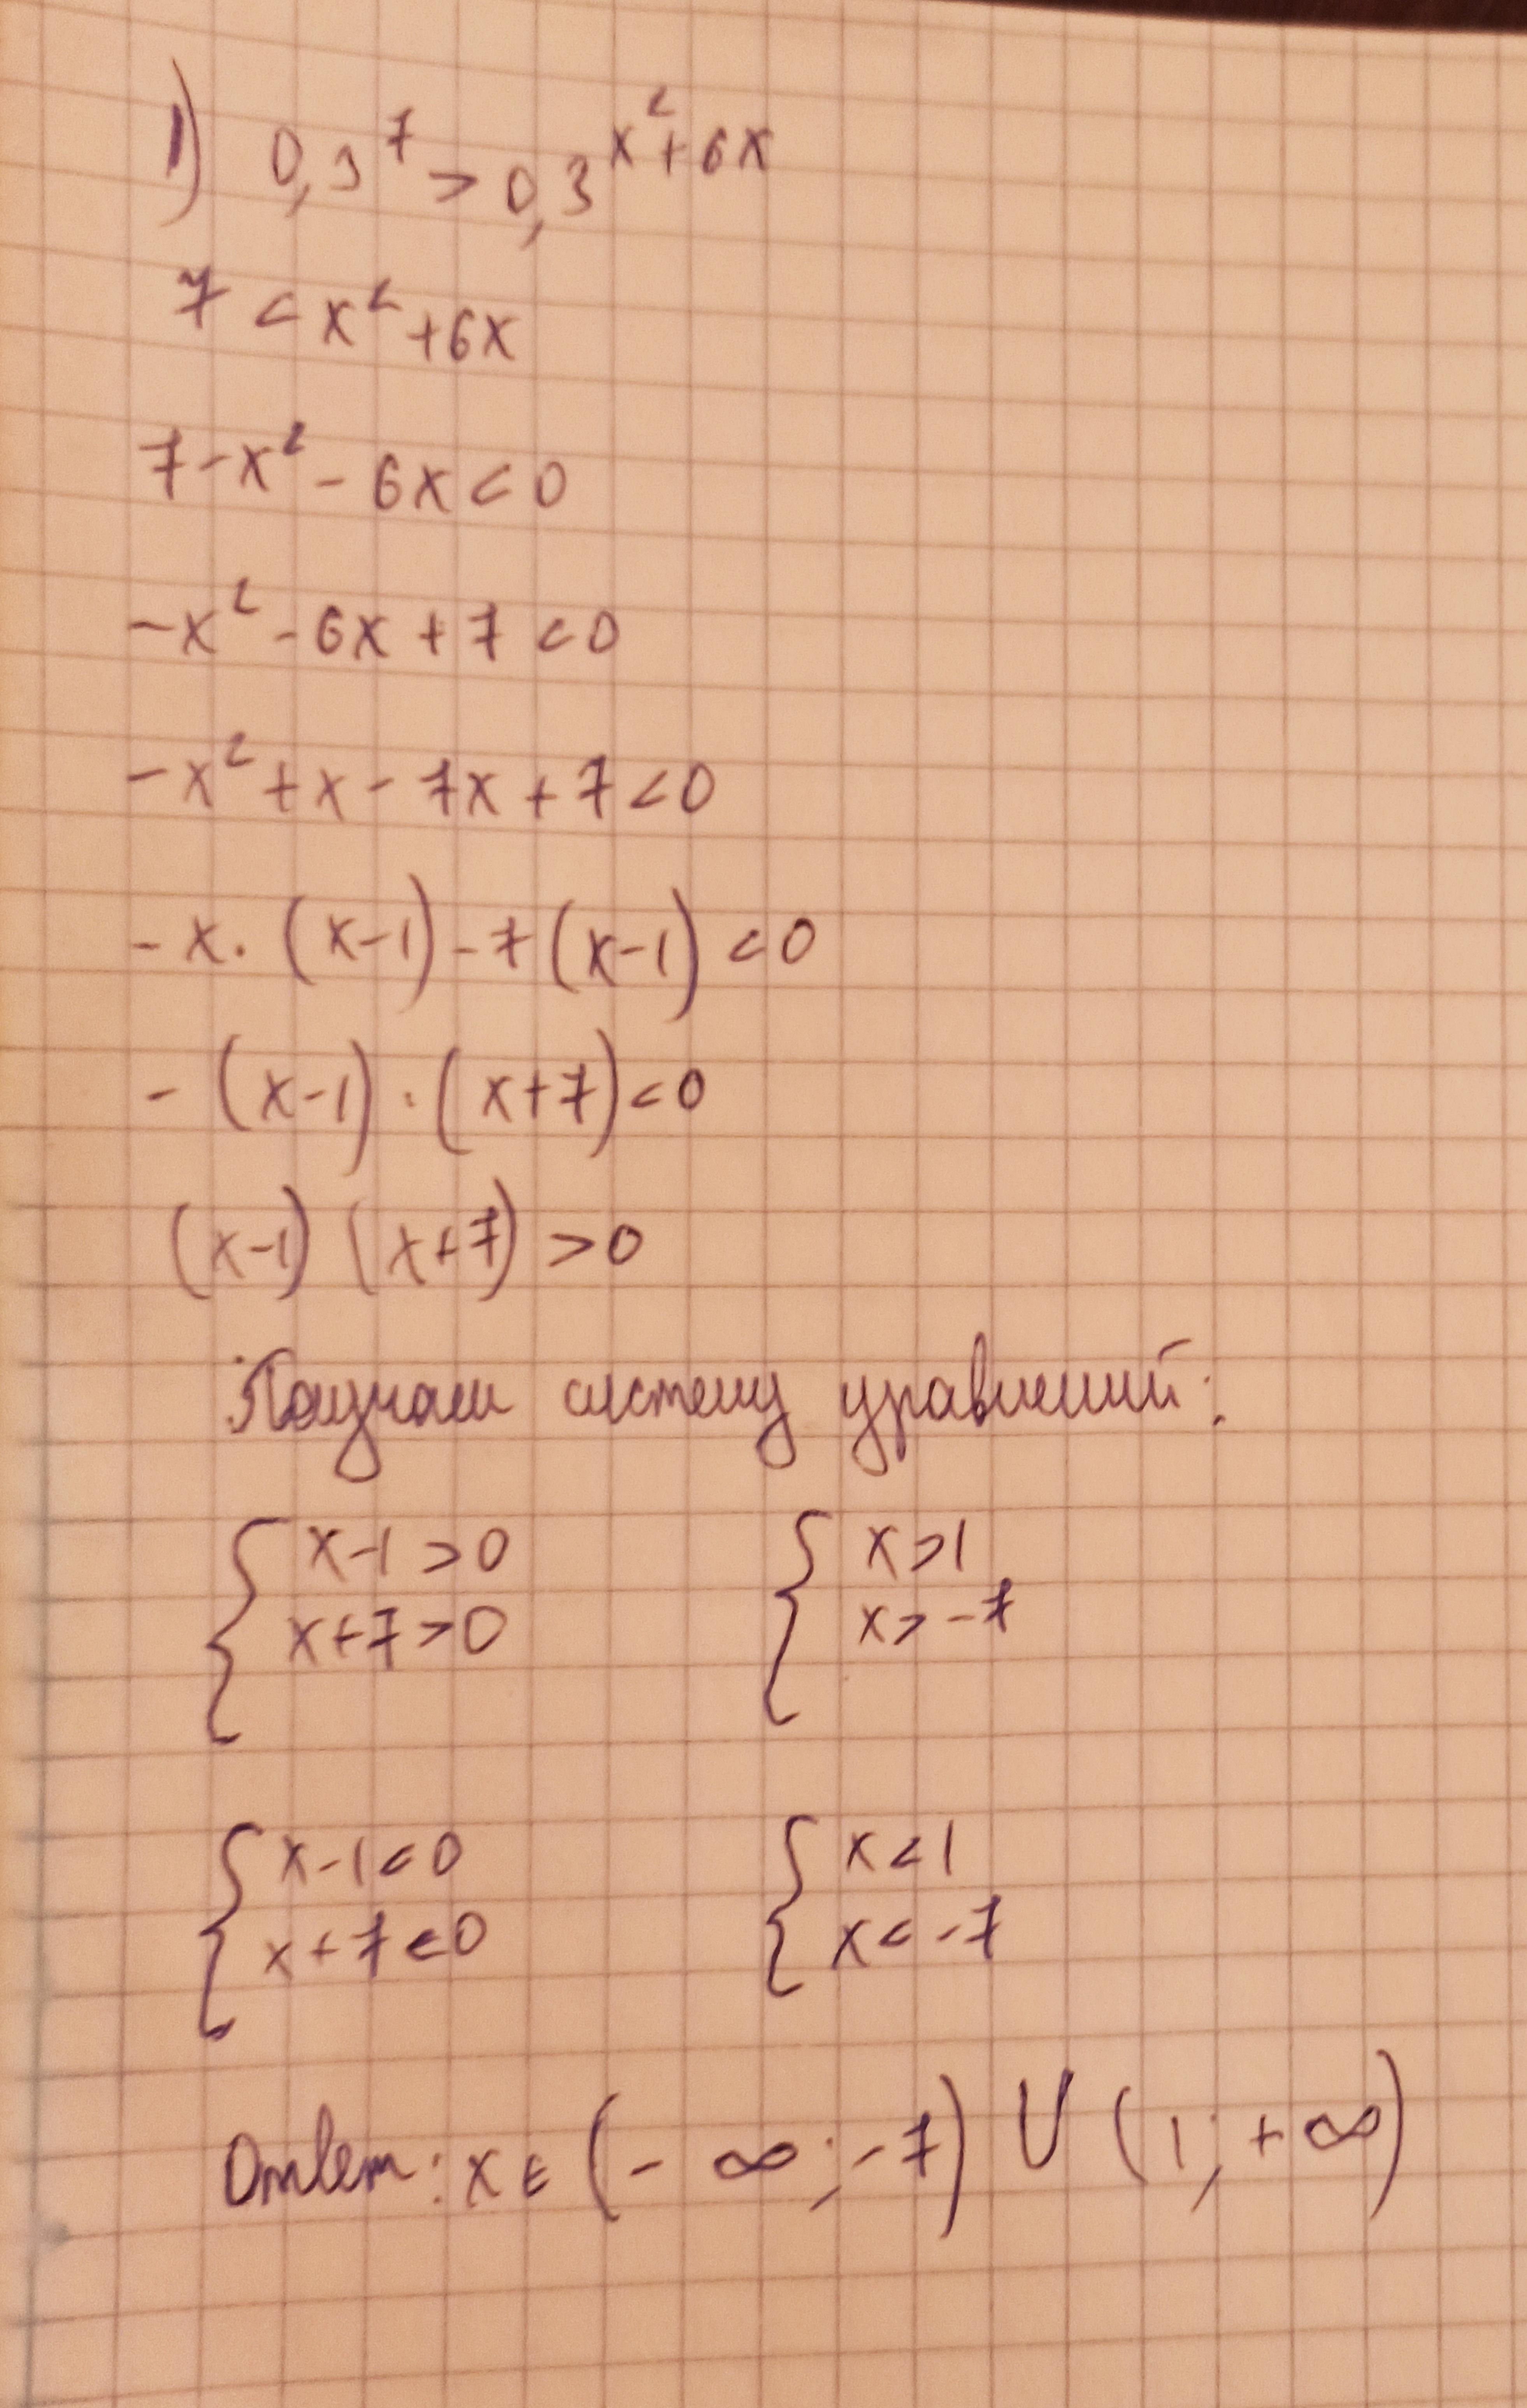 1) 0,3⁷ > 0,3^(x²+6x)
7 < x² + 6x
7 - x² - 6x < 0
-x² - 6x + 7 < 0
-x² + x - 7x + 7 < 0
- x · (x-1) - 7 (x-1) < 0
- (x-1) · (x+7) < 0
(x-1) (x+7) > 0
Получаем систему уравнений:
{ x-1 > 0 { x > 1
x+7 > 0 x > -7
{ x-1 < 0 { x < 1
x+7 < 0 x < -7
Ответ: x ∈ (- ∞; -7) U (1; +∞)